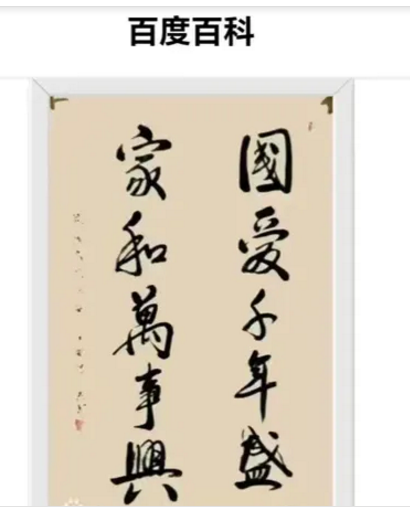 百度百科
國愛千年盛
家和萬事興